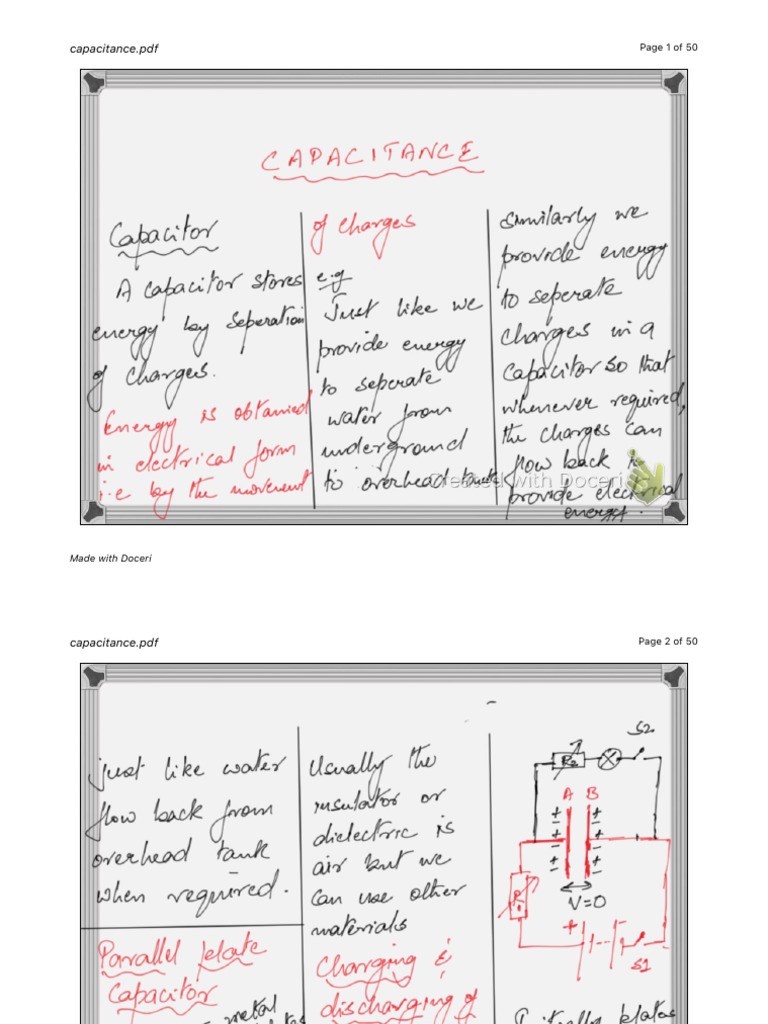 capacitance.pdf
Page 1 of 50
CAPACITANCE
Capacitor
A capacitor stores
energy by seperation
of charges.
Energy is obtained
in electrical form
i.e by the movement
of charges
e.g
Just like we
provide energy
to seperate
water from
underground
to overhead tank
Similarly we
provide energy
to seperate
charges in a
capacitor so that
whenever required,
the charges can
flow back &
provide electrical
energy.
Created with Doceri
Made with Doceri
capacitance.pdf
Page 2 of 50
just like water
flow back from
overhead tank
when required.
Parallel plate
Capacitor
metal
Usually the
insulator or
dielectric is
air but we
can use other
materials
Charging &
discharging of
S2
R2
A B
+ +
- -
+ +
- -
+ +
- -
V=0
R1
+
S1
Initially plates